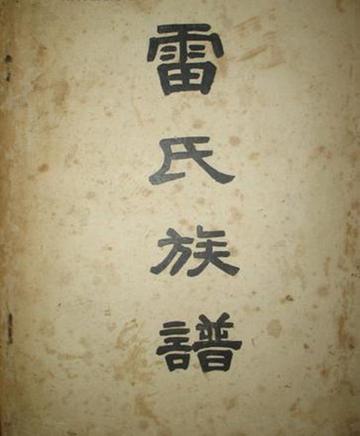 雷氏族譜